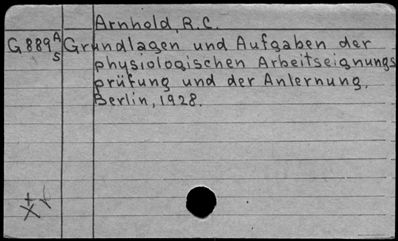 Arnhold, R.C.
G889A Grundlagen und Aufgaben der
s physiologischen Arbeitseignungs
prüfung und der Anlernung.
Berlin, 1928.